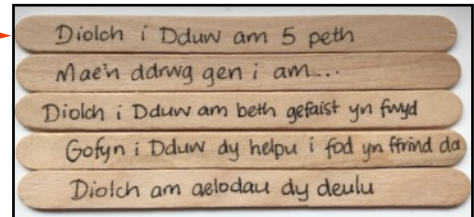 Diolch i Dduw am 5 peth
Mae'n ddrwg gen i am...
Diolch i Dduw am beth gefaist yn fwyd
Gofyn i Dduw dy helpu i fod yn ffrind da
Diolch am aelodau dy deulu